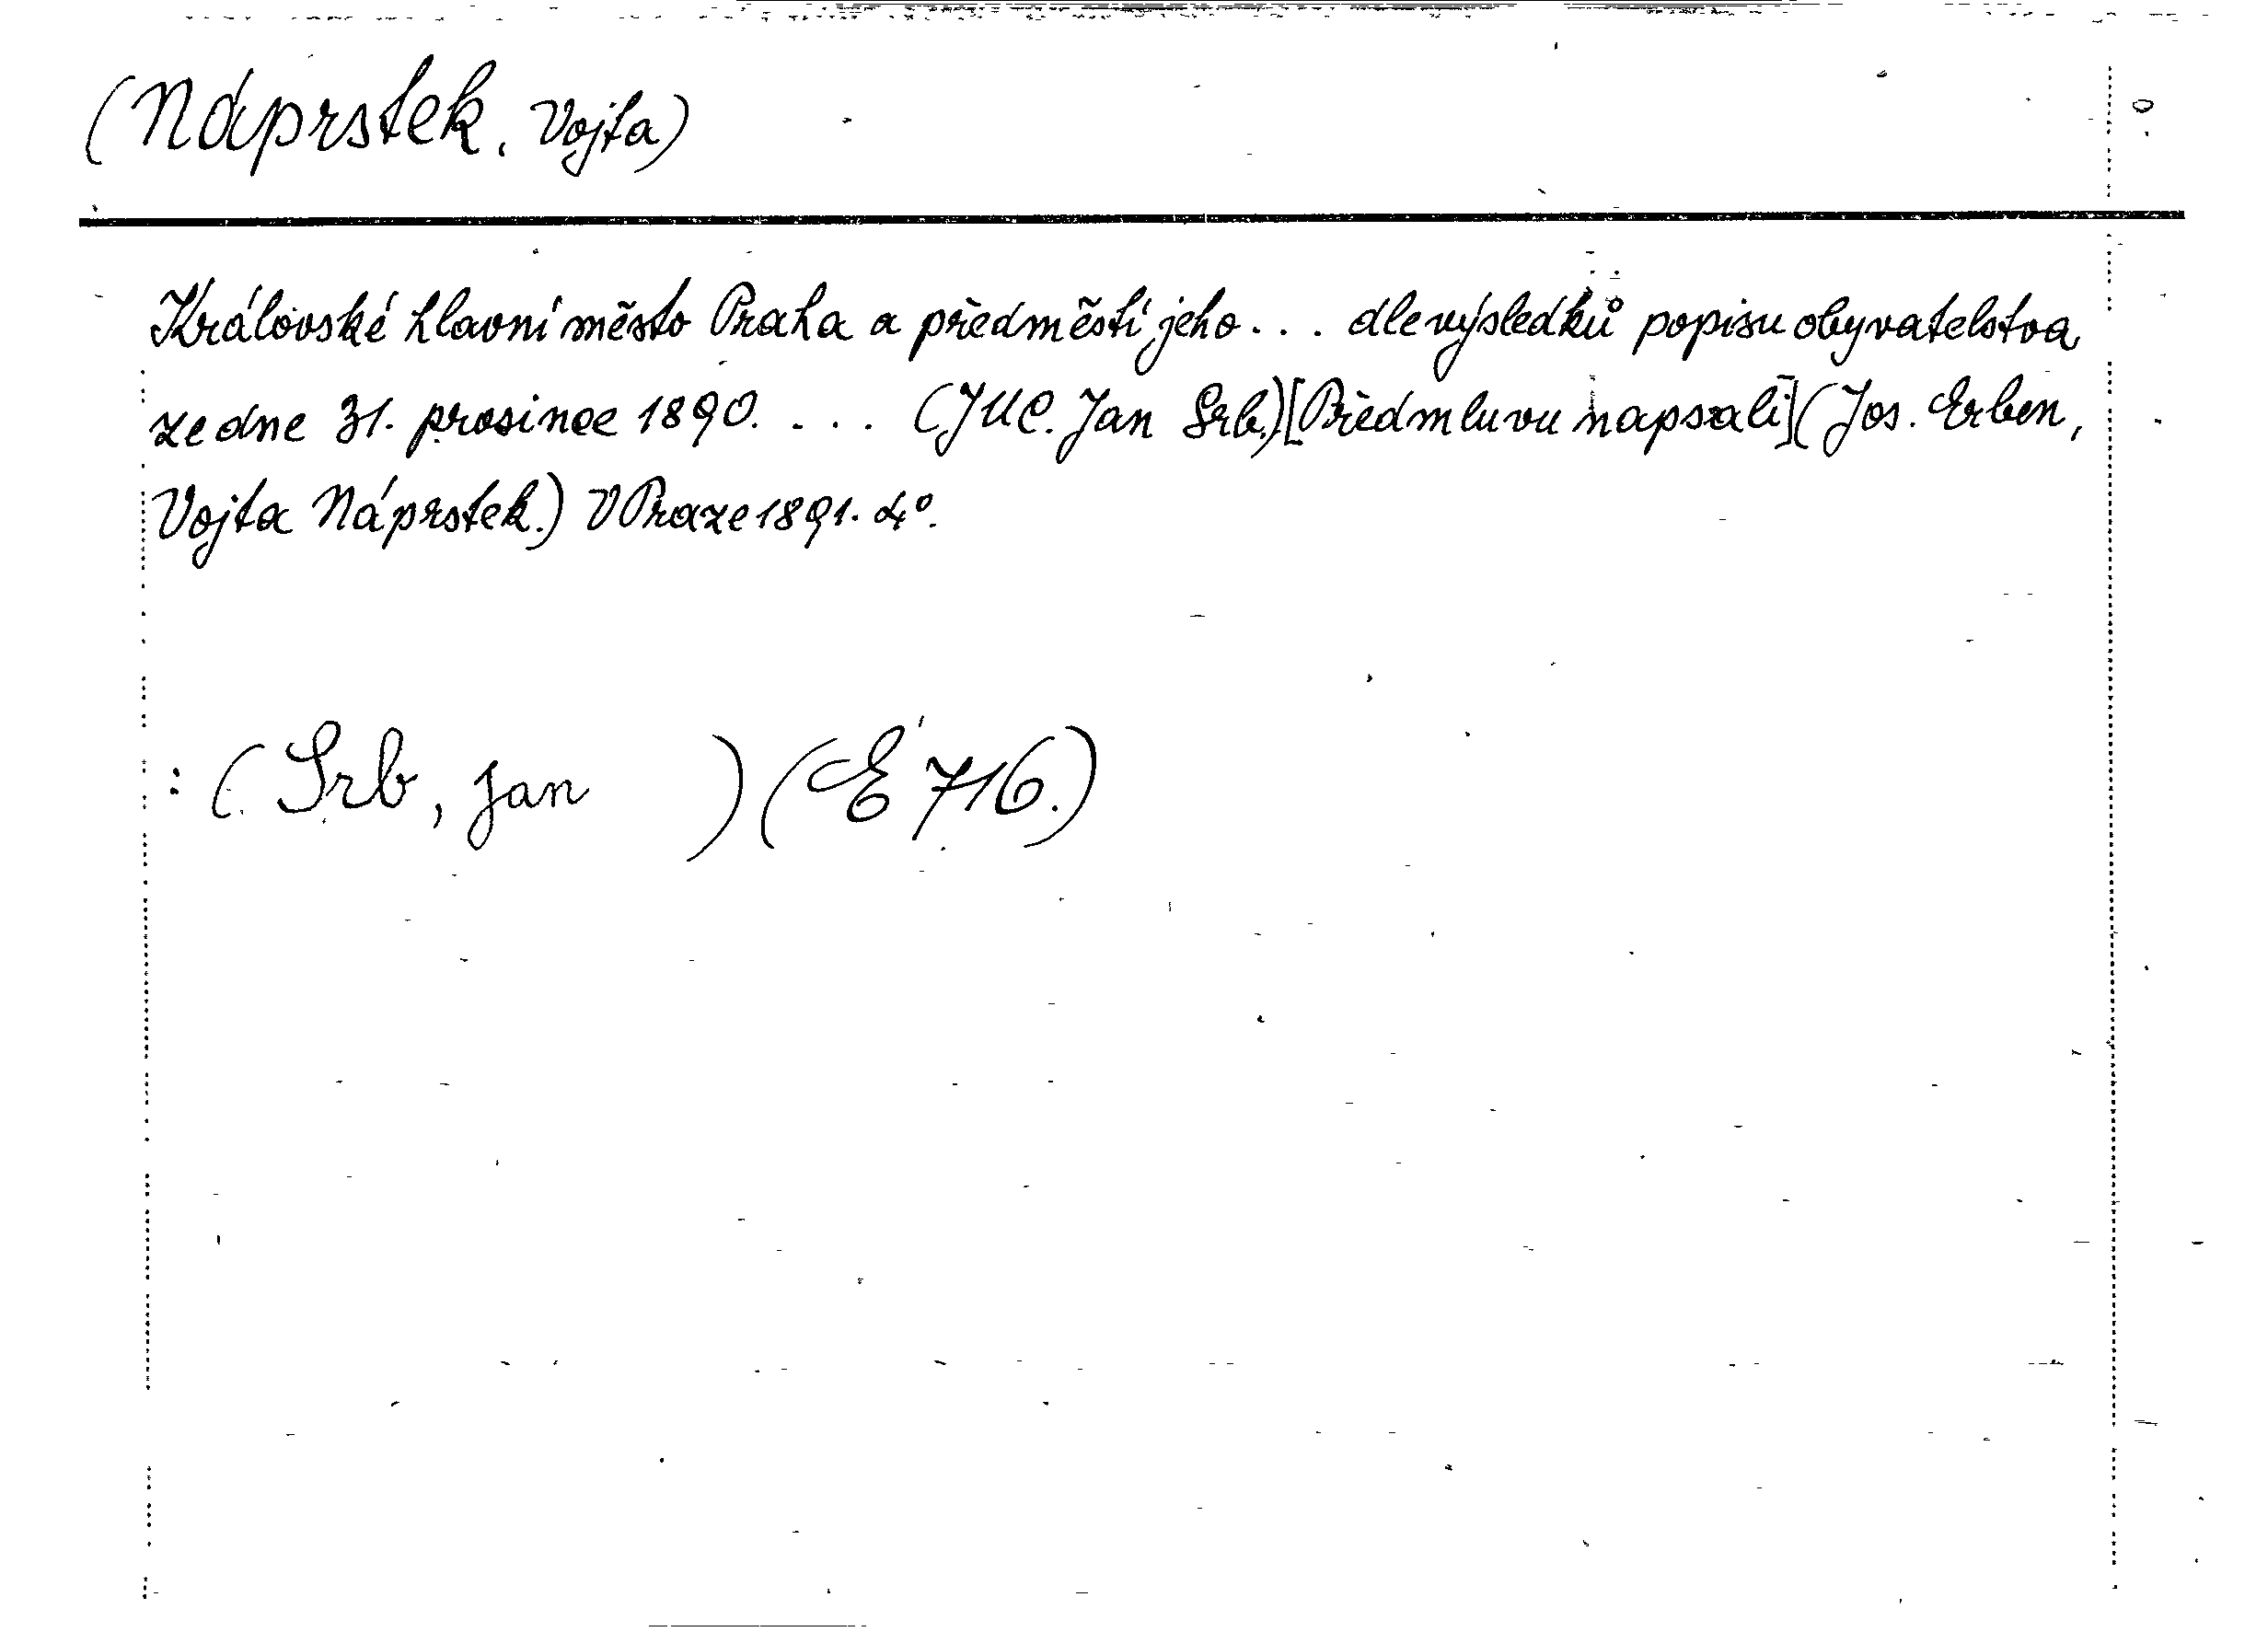 (Náprstek, Vojta)
Královské hlavní město Praha a předměstí jeho... dle výsledků popisu obyvatelstva
ze dne 31. prosince 1890. ... (JUC. Jan Srb.) [Předmluvu napsali] (Jos. Erben,
Vojta Náprstek.) V Praze 1891. 4°.
: (Srb, Jan ) (E 716.)